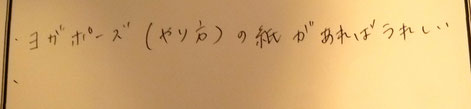 ・ヨガポーズ(やり方)の紙があればうれしい
、